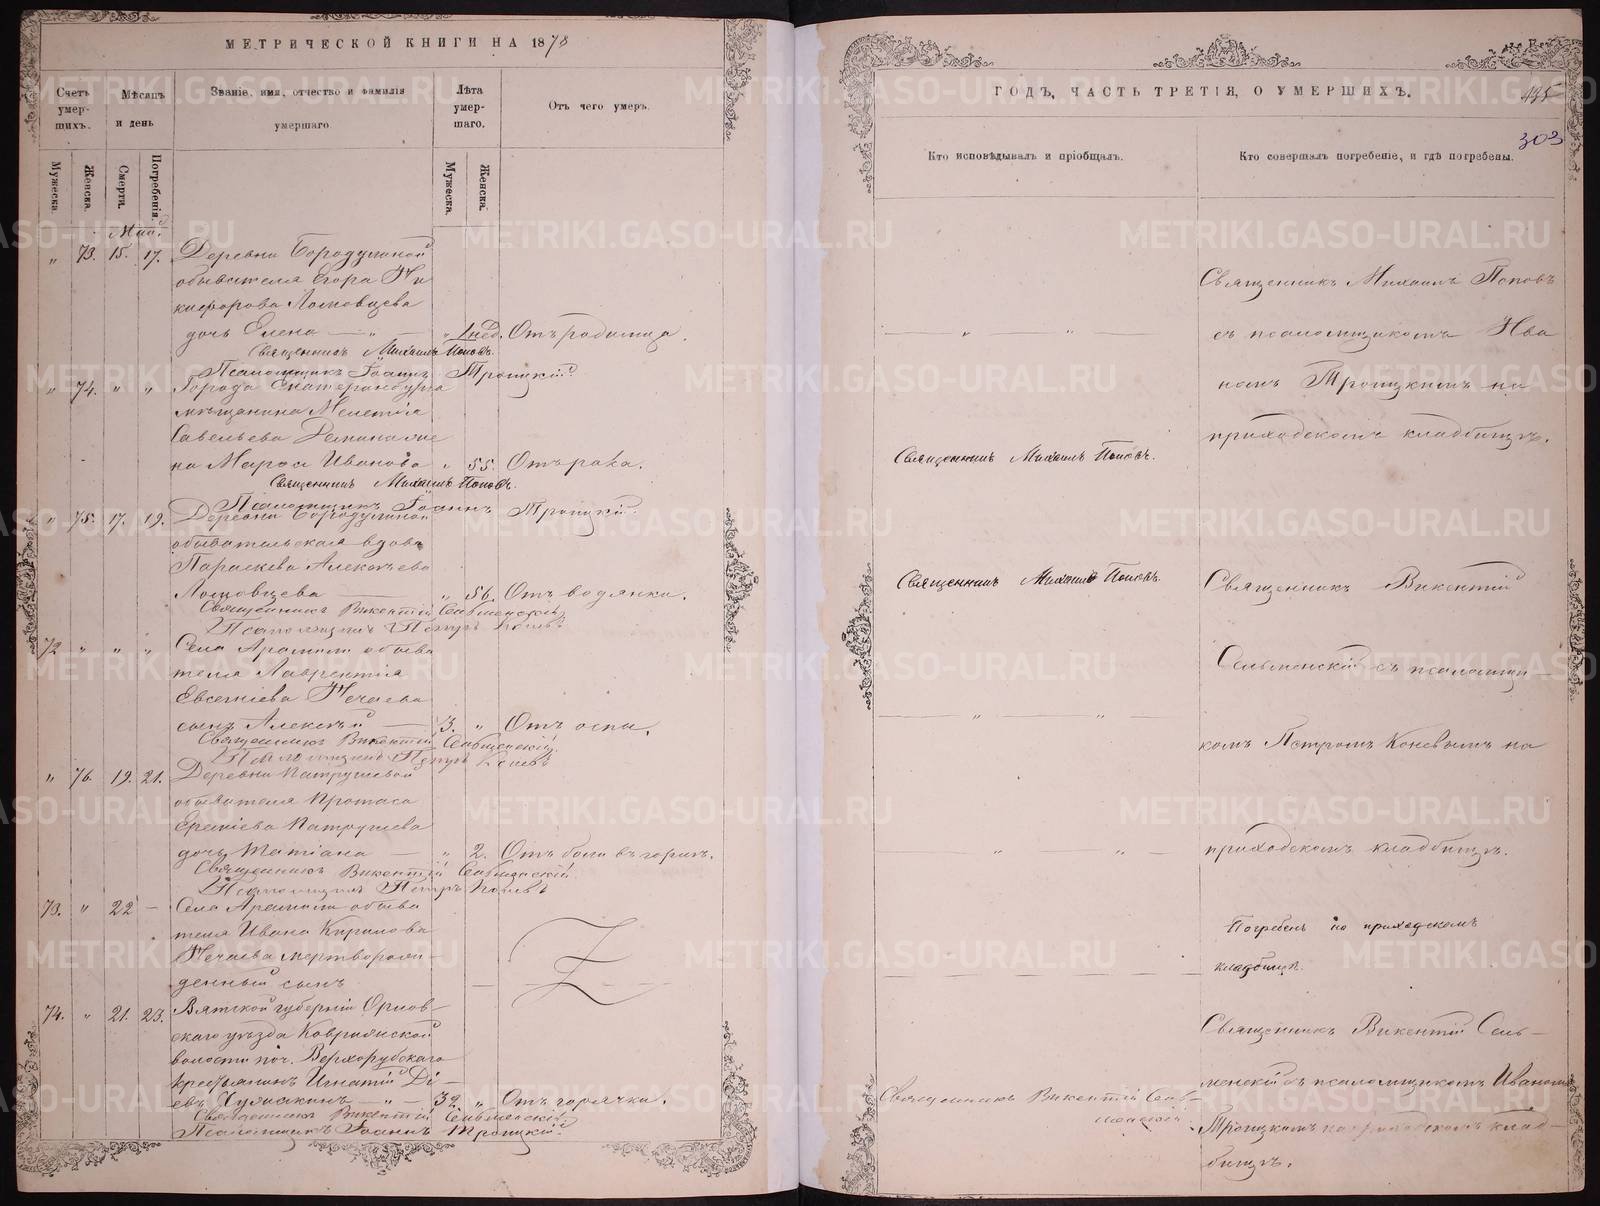 МЕТРИЧЕСКОЙ КНИГИ НА 1878
Счетъ умерших.
Мѣсяцъ и день
Званіе, имя, отчество и фамилія умершаго.
Лѣта умершаго.
Отъ чего умеръ.
Мужеска.
Женска.
Смерти.
Погребенія.
Мужеска.
Женска.
Май.
„ 73. 15. 17. Деревни Бородулиной
обывателя Егора Ни
кифорова Ломовцева
дочь Елена — „ — „ 1 нед. Отъ родимца.
Священникъ Михаилъ Поповъ.
Псаломщикъ Іоаннъ Троицкій
„ 74. „ „ Города Екатеринбурга
мѣщанина Мелетія
Савельева Деминa же
на Мароа Иванова „ 55. Отъ рака.
Священникъ Михаилъ Поповъ.
Псаломщикъ Іоаннъ Троицкій
„ 75. 17. 19. Деревни Бородулиной
обывательская вдова
Параскева Алексѣева
— „ 56. Отъ водянки.
Священникъ Викентій Сельменскій
Псаломщикъ Петръ Коневъ
72 „ „ „ Села Арамили обыва
теля Лаврентія
Евсегніева Нечаева
сынъ Алексѣй — 3. „ Отъ оспы.
Священникъ Викентій Сельменскій.
Псаломщикъ Петръ Коневъ
„ 76. 19. 21. Деревни Патрушевой
обывателя Протаса
Патрушева
дочь Татіана — „ 2. Отъ боли въ горлѣ.
Священникъ Викентій Сельменскій
Псаломщикъ Петръ Коневъ
73. „ 22 — Села Арамили обыва
теля Ивана Кирилова
Нечаева мертворож-
денный сынъ
74. „ 21. 23. Вятской губерніи Орлов-
скаго уѣзда Ковринской
волости поч. Верхорубскаго
крестьянинъ Игнатій Ді-
евъ — „ — 39. „ Отъ горячки.
Священникъ Викентій Сельменскій
Псаломщикъ Іоаннъ Троицкій
ГОДЪ, ЧАСТЬ ТРЕТІЯ, О УМЕРШИХЪ.
195
303
Кто исповѣдывалъ и пріобщалъ.
Кто совершалъ погребеніе, и гдѣ погребены.
Священникъ Михаилъ Поповъ
— „ „ — съ псаломщикомъ Ива
номъ Троицкимъ на
приходскомъ кладбищѣ.
Священникъ Михаилъ Поповъ.
Священникъ Михаилъ Поповъ. Священникъ Викентій
Сельменскій съ псаломщи—
— „ — „ —
комъ Петромъ Коневымъ на
— „ — „ — приходскомъ кладбищѣ.
Погребенъ на приходскомъ
кладбищѣ.
Священникъ Викентій Сель—
менскій съ псаломщикомъ Иваномъ
Священникъ Викентій Сель-
менскій.
Троицкимъ на приходскомъ клад—
бищѣ.
METRIKI.GASO-URAL.RU